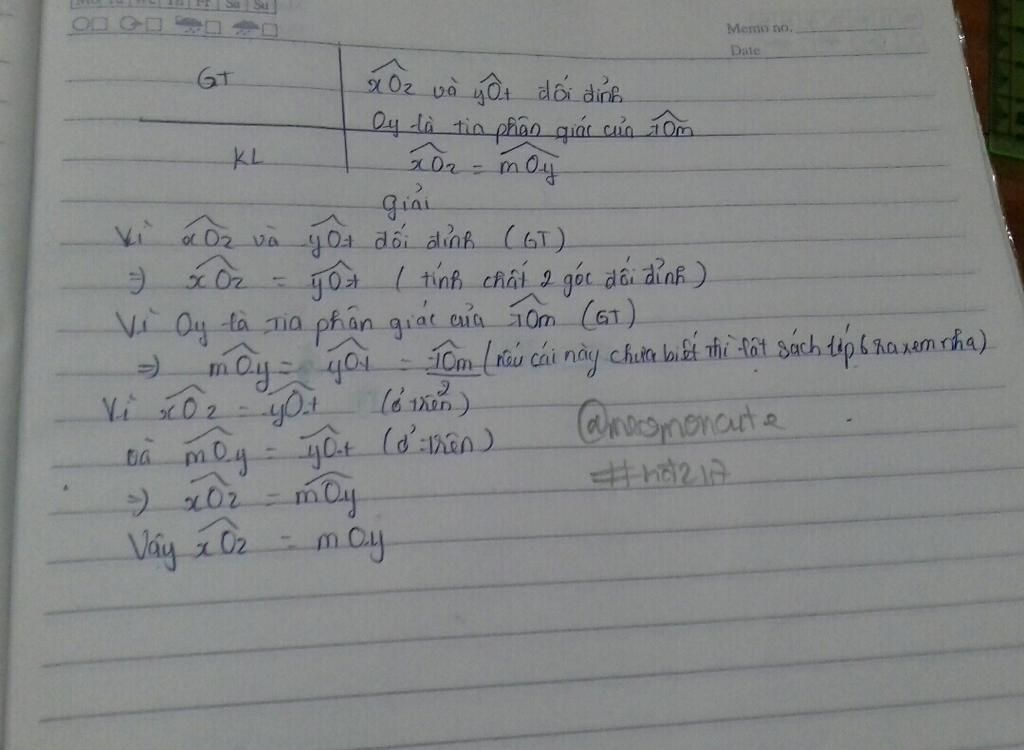 Mo Tu We Th Fr Sa Su
Memo no.
Date
GT
xOz và yOt đối đỉnh
Oy là tia phân giác của tOm
KL
xOz = mOy
giải
Vì xOz và yOt đối đỉnh (GT)
=> xOz = yOt (tính chất 2 góc đối đỉnh)
Vì Oy là tia phân giác của tOm (GT)
=> mOy = yOt = tOm/2 (nếu cái này chưa biết thì lật sách lớp 6 ra xem nha)
Vì xOz = yOt (ở trên)
và mOy = yOt (ở trên)
=> xOz = mOy
Vậy xOz = mOy